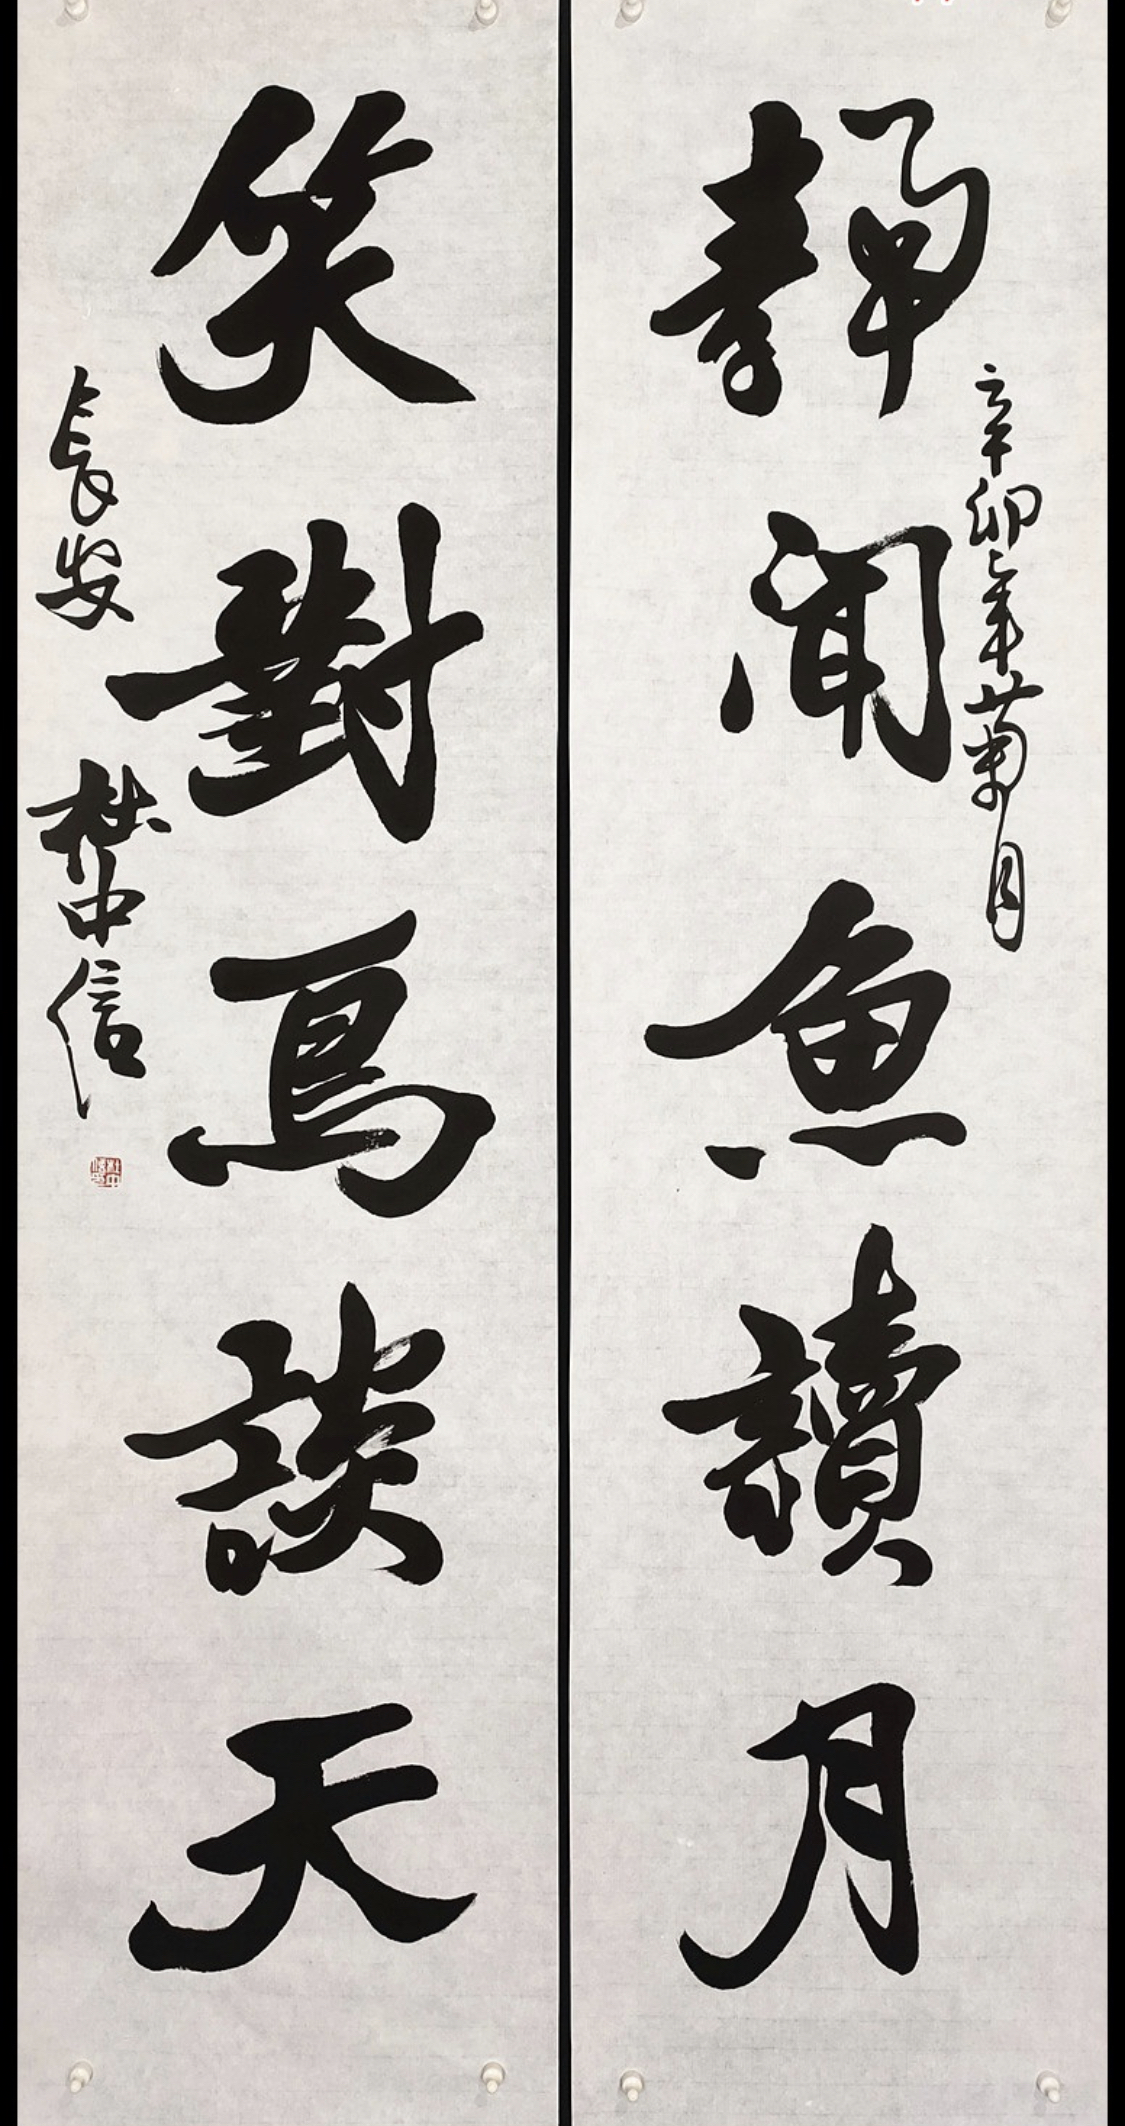 辛卯年菊月
靜聞魚讀月
笑對鳥談天
長安 杜中信